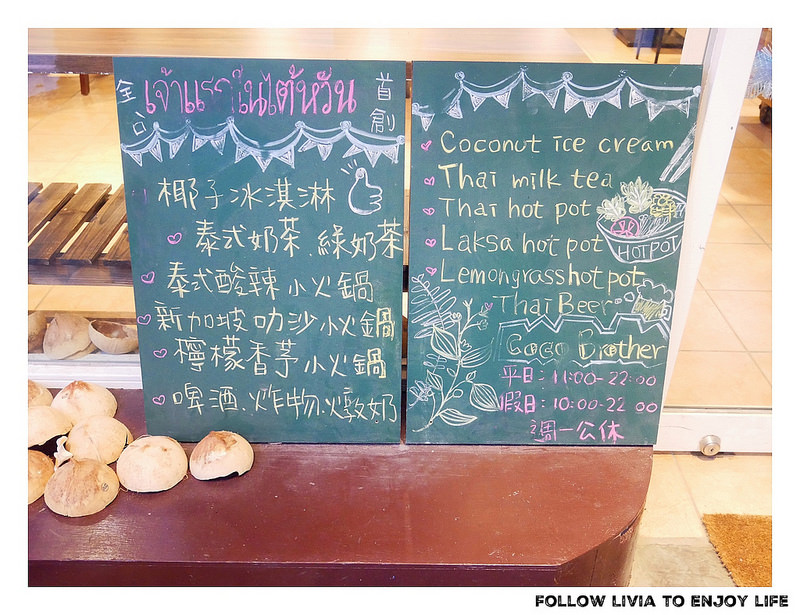 全台 เจ้าแรกในไต้หวัน 首創
椰子冰淇淋
泰式奶茶.綠奶茶
泰式酸辣小火鍋
新加坡叻沙小火鍋
檸檬香茅小火鍋
啤酒.炸物.燉奶
Coconut ice cream
Thai milk tea
Thai hot pot
Laksa hot pot
HOTPOT
Lemongrass hot pot
Thai Beer
CoCo Brother
平日：11:00-22:00
假日：10:00-22:00
週一公休
FOLLOW LIVIA TO ENJOY LIFE